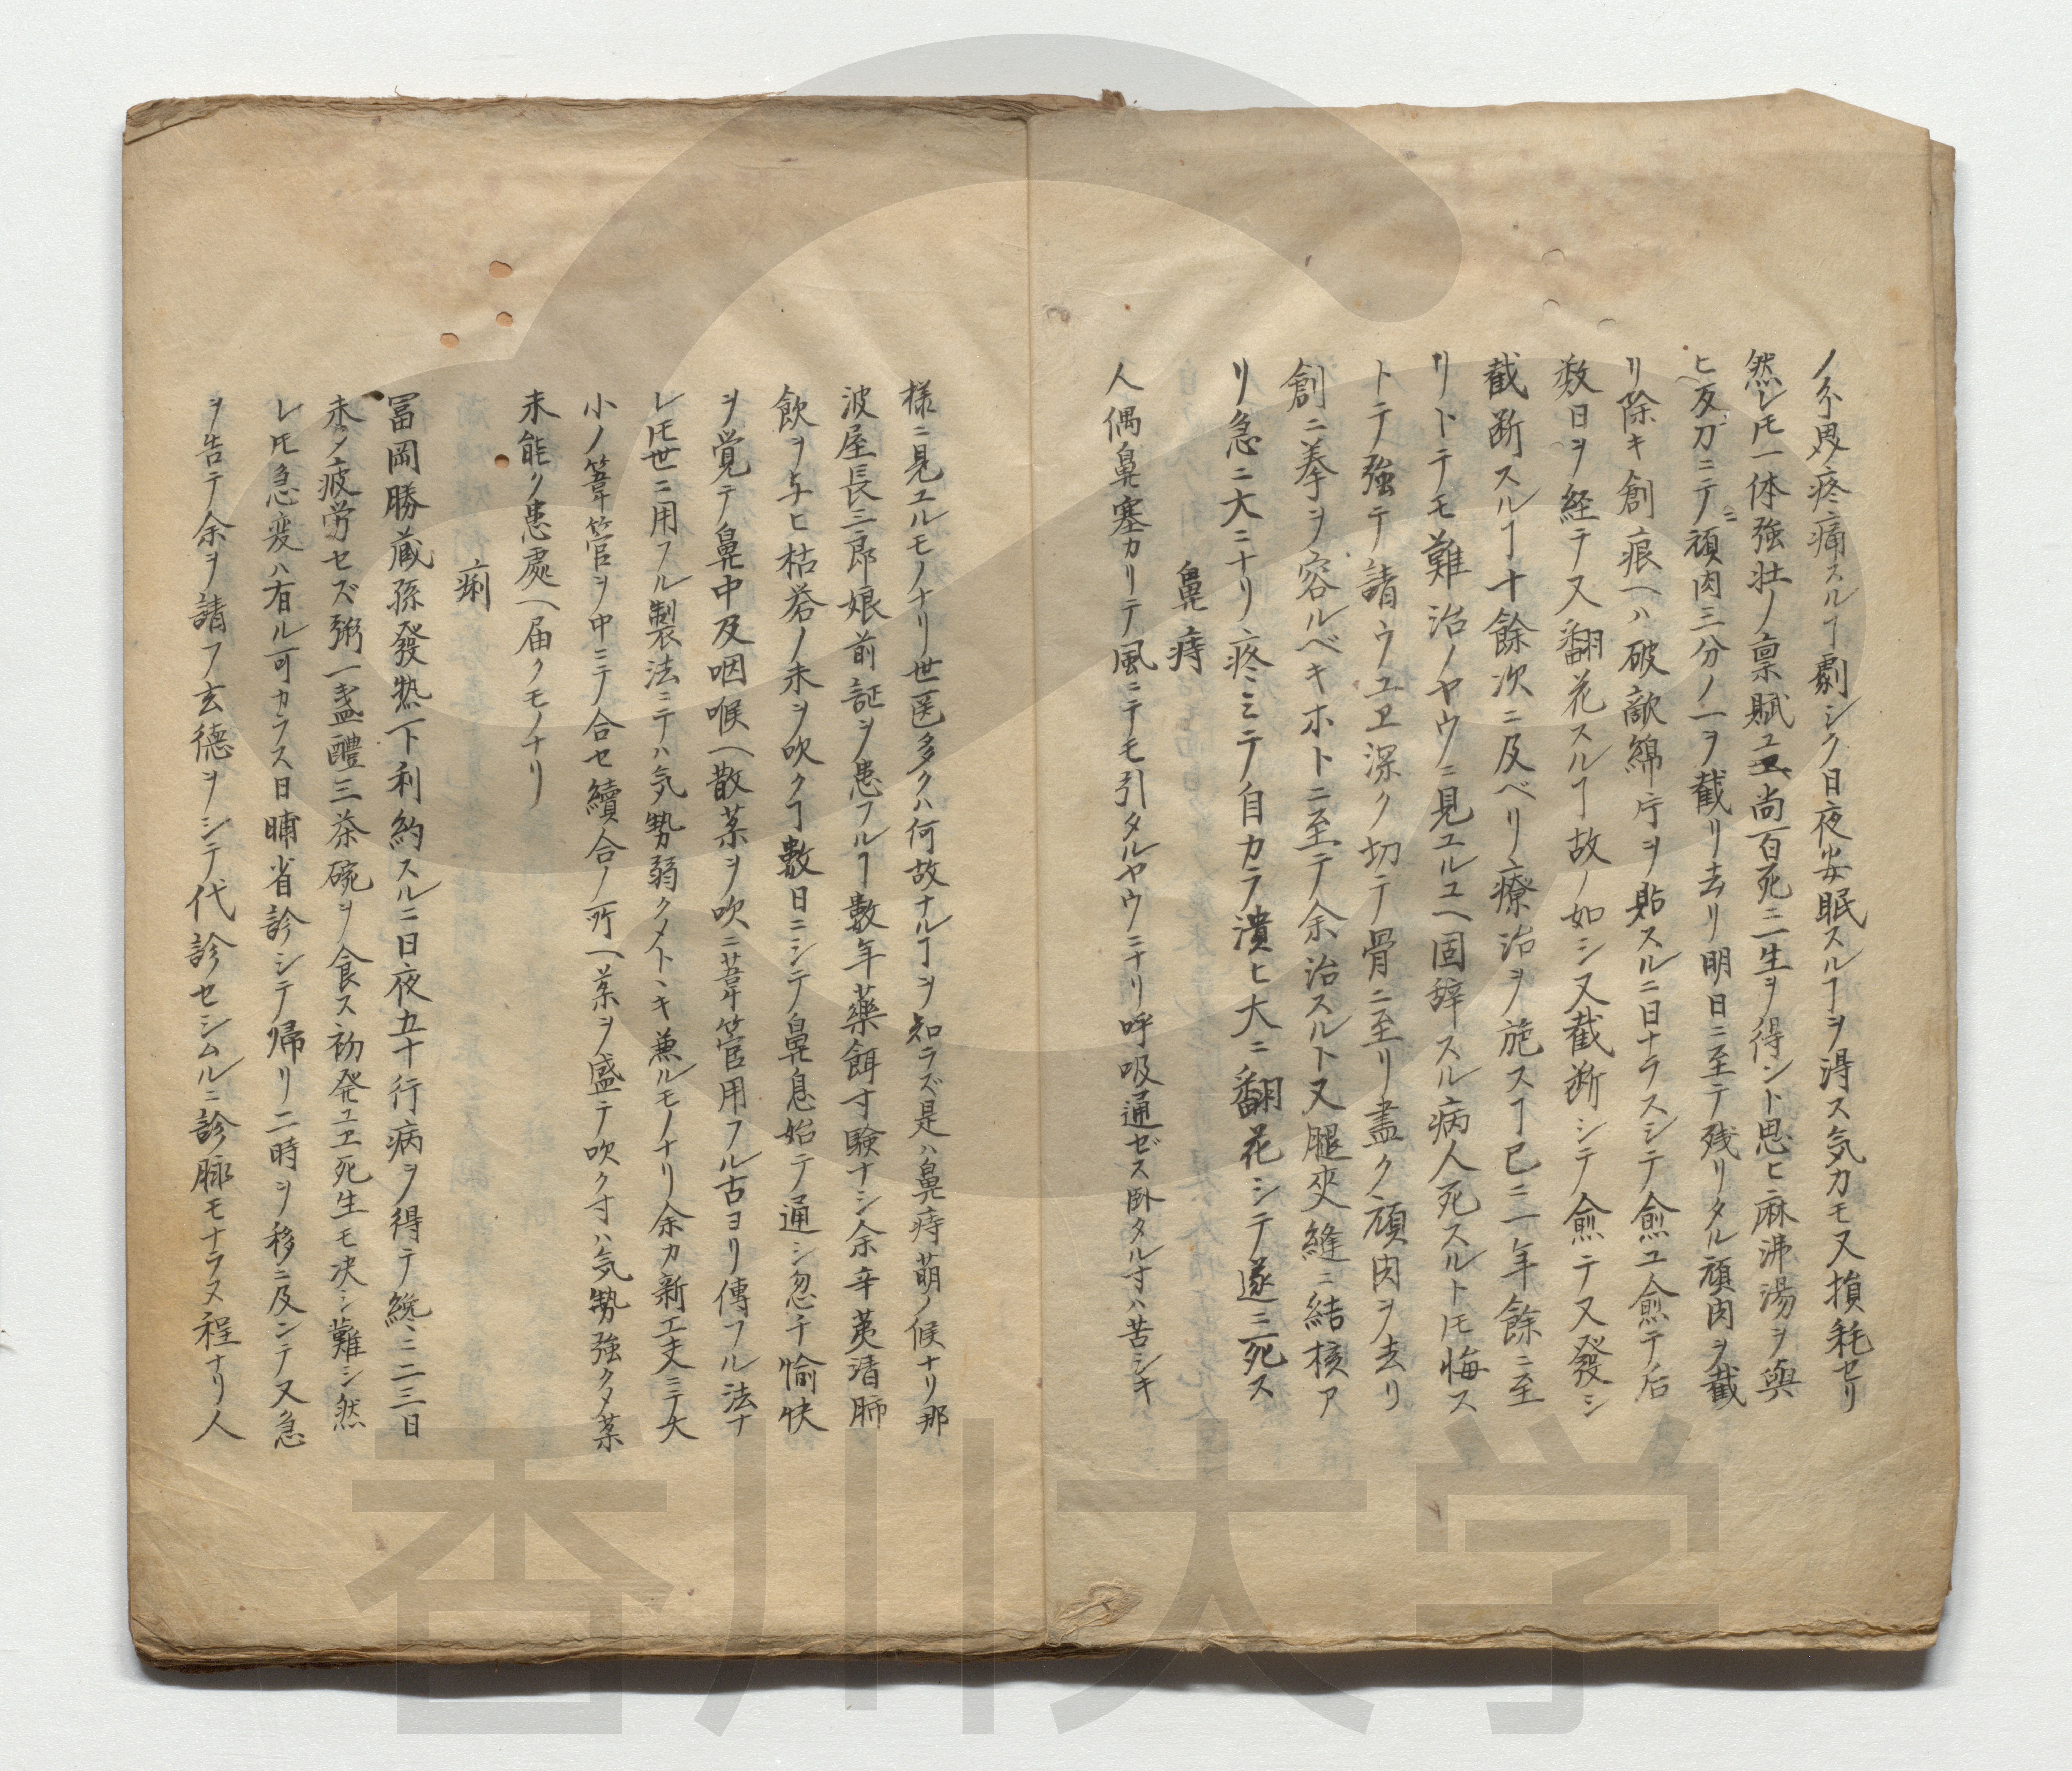 疼痛スルヿ劇シク日夜安眠スルヿヲ得ス気力モ又損耗セリ
然レ𪜈一体強壮ノ禀賦ユヱ尚百死ニ一生ヲ得ント思ヒ麻沸湯ヲ與
ヒ反刀ニテ頑肉三分ノ一ヲ截リ去リ明日ニ至テ残リタル頑肉ヲ截
リ除キ創痕ヘハ破敵綿片ヲ貼スルニ日ナラスシテ愈ユ愈テ后
数日ヲ経テ又翻花スルヿ故ノ如シ又截断シテ愈テ又發シ
截断スルヿ十餘次ニ及ベリ療治ヲ施スヿ已ニ一年餘ニ至
リトテモ難治ノヤウニ見ユルユヘ固辞スル病人死スルト𪜈悔ス
トテ強テ請ウユヱ深ク切テ骨ニ至リ盡ク頑肉ヲ去リ
創ニ拳ヲ容ルベキホトニ至テ余治スルト又腿夾縫ニ結核ア
リ急ニ大ニナリ疼ミテ自カラ潰ヒ大ニ翻花シテ遂ニ死ス
鼻痔
人偶鼻塞カリテ風ニテモ引タルヤウニナリ呼吸通ゼス臥タル寸ハ苦シキ
様ニ見ユルモノナリ世医多クハ何故ナルヿヲ知ラズ是ハ鼻痔萌ノ候ナリ那
波屋長三郎娘前証ヲ患フルヿ數年藥餌寸験ナシ余辛荑清肺
飲ヲ与ヒ枯礬ノ末ヲ吹クヿ數日ニシテ鼻息始テ通シ忽チ愉快
ヲ覚テ鼻中及咽喉ヘ散茶ヲ吹ニ葦管用フル古ヨリ傳フル法ナ
レ𪜈世ニ用フル製法ニテハ気勢弱クメトヽキ兼ルモノナリ余カ新工夫ニテ大
小ノ葦管ヲ中ニテ合セ續合ノ所ヘ茶ヲ盛テ吹ク寸ハ気勢強クメ茶
末能ク患處ヘ届クモノナリ
痢
冨岡勝蔵孫發熱下利約スルニ日夜五十行病ヲ得テ纔ニ二三日
未タ疲労セズ粥一盞醴三茶碗ヲ食ス初発ユヱ死生モ决シ難シ然
レ𪜈急変ハ有ル可カラス日晡省診シテ帰リ二時ヲ移ニ及ンテ又急
ヲ告テ余ヲ請フ玄徳ヲシテ代診セシムルニ診脈モナラヌ程ナリ人
香川大学